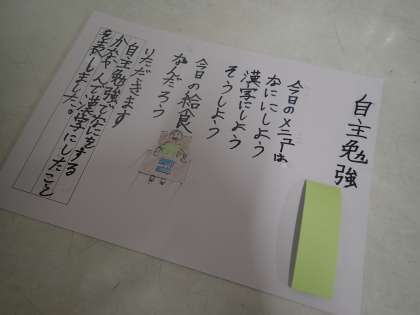 自主勉強
今日のメニューは
なににしよう
漢字にしよう
そうしよう
今日の給食
なんだろう
いただきます
自主勉強で、なにをする
かなやんで漢字にしたこと
を表しました。